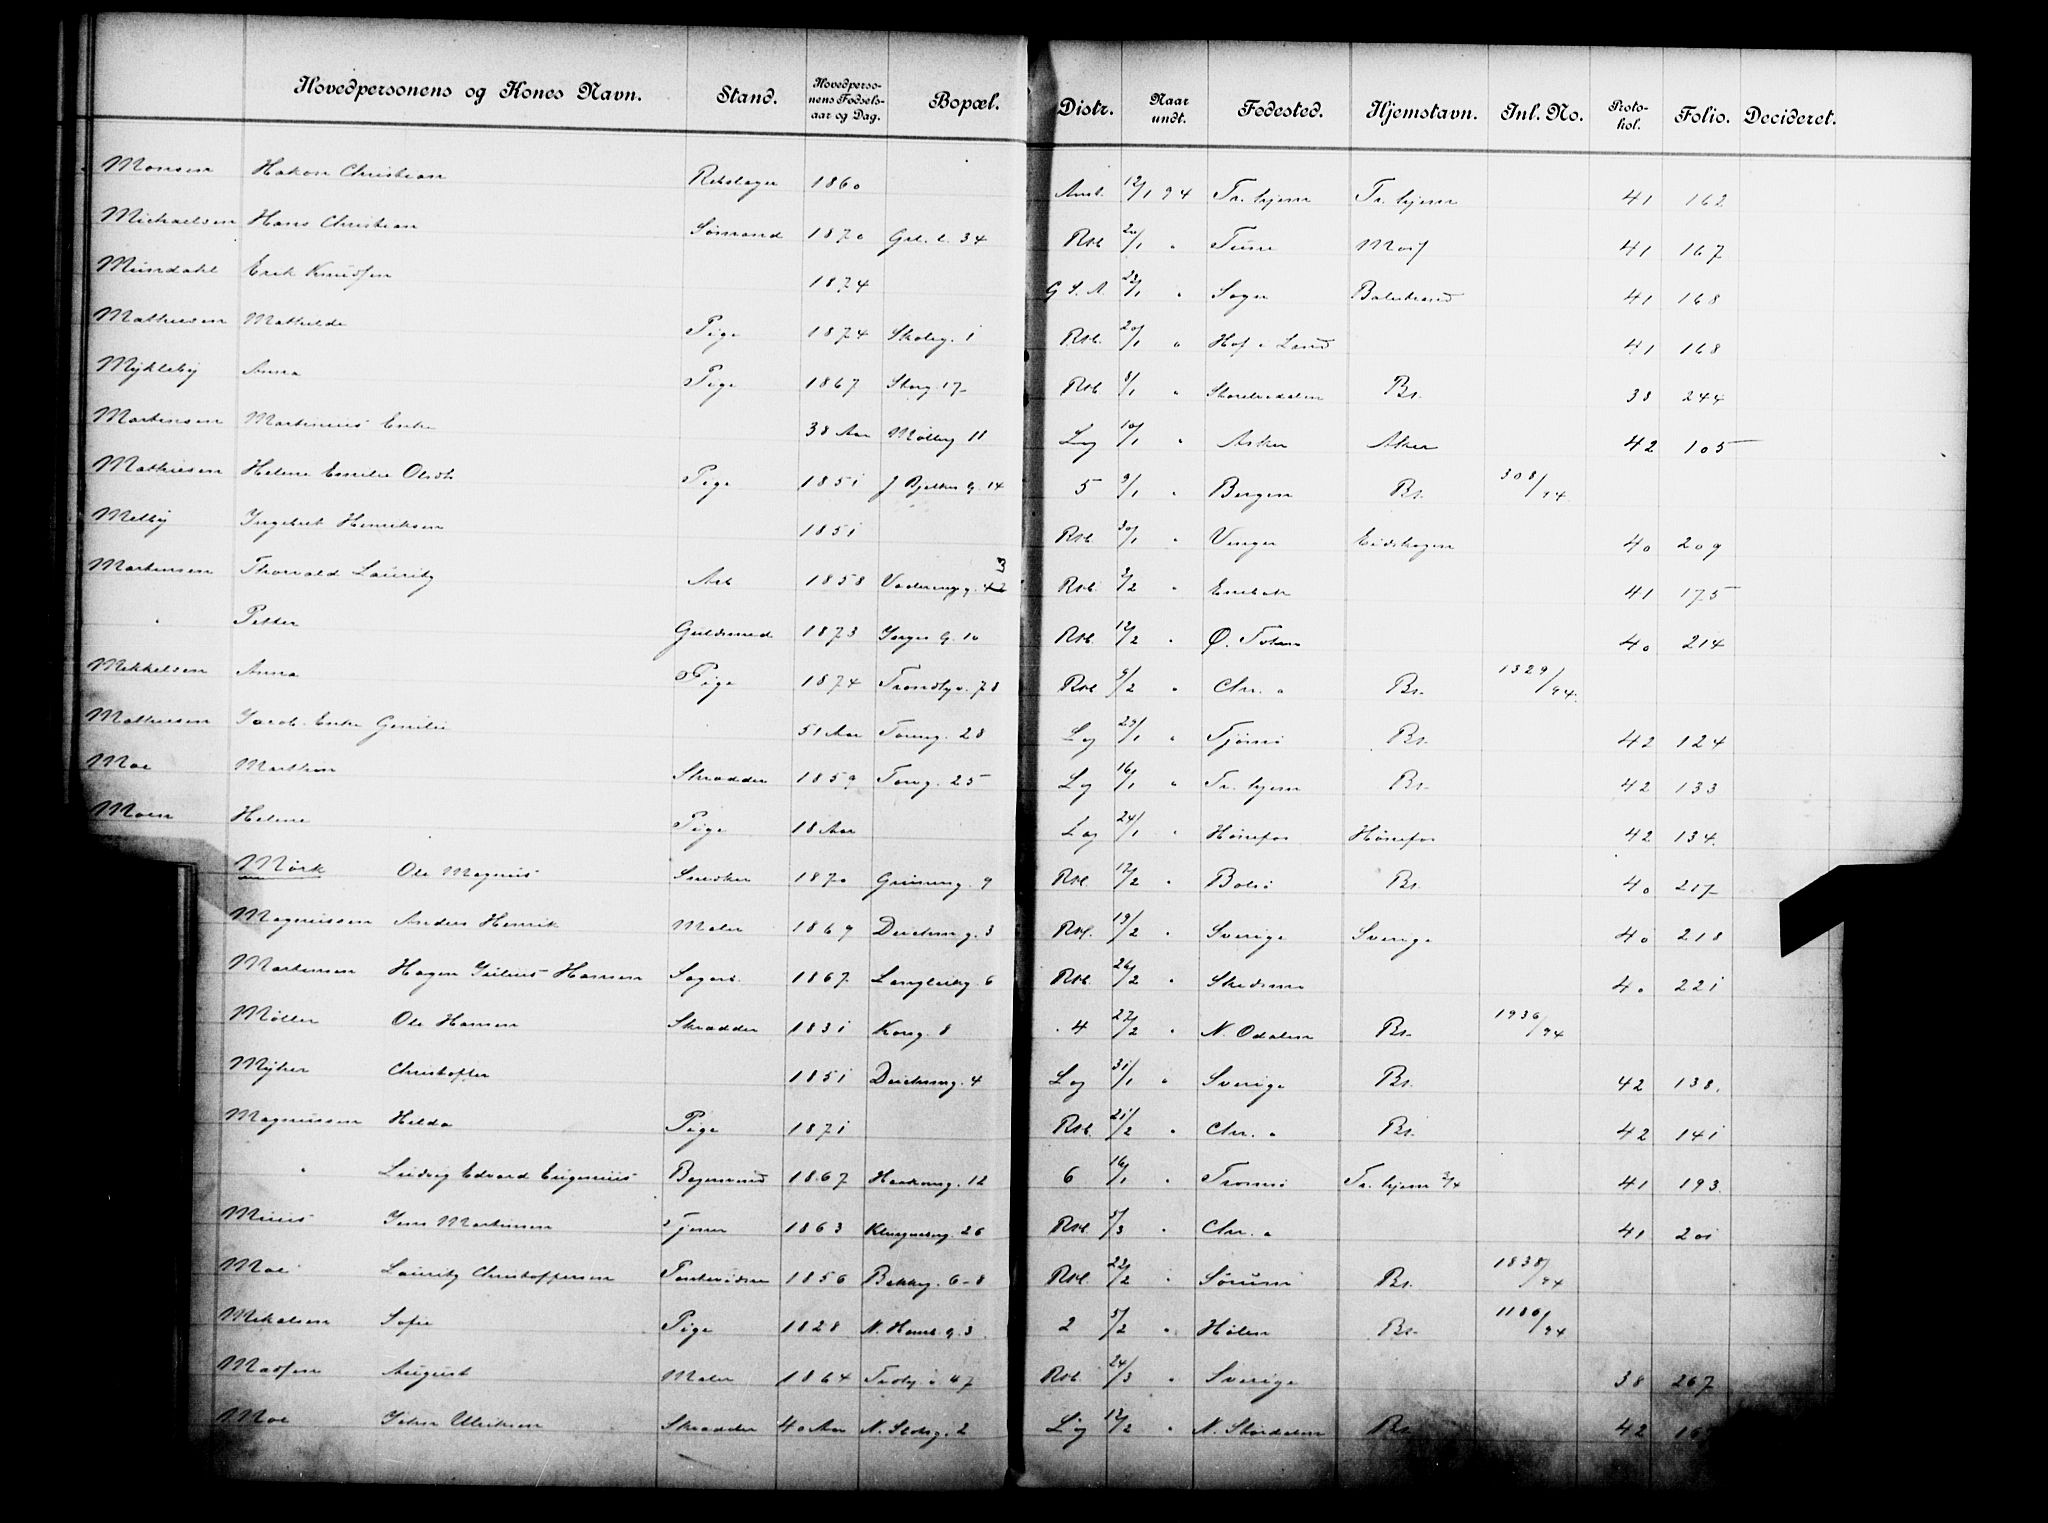 Hovedpersonens og Kones Navn. Stand. Hovedpersonens Fødselsaar og Dag. Bopæl. Distr. Naar undt. Fødested. Hjemstavn. Inl. No. Protokol. Folio. Decideret.
Monsen Hakon Christian Rebslager 1860 Anst. 12/1 94 Tr.hjem Tr.hjem 41 162
Michaelsen Hans Christian Sømand 1870 Grl. l. 34 Rst. 20/1 " Tune Moss 41 167
Mundahl Erik Knudsen 1874 G S. A. 22/1 " Sogn Balestrand 41 168
Mathiesen Mathilde Pige 1874 Skoleg. 1 Rst. 20/1 " Hof i Land 41 168
Mykleby Anna Pige 1867 Storg. 17 Rst. 8/1 " Storelvedalen Bs. 38 244
Martinsen Martinius Enke 38 Aar Mølleg 11 Lg 10/1 " Asker Aker 42 105
Mathiesen Helene Emilie Olsdt Pige 1851 J Bjelkes G. 14 5 9/1 " Bergen Bs. 308/94
Melby Ingebret Henriksen 1851 Rst. 30/1 " Vinger Eidskogen 40 209
Martinsen Thorvald Lauritz Arb 1858 Vaalereng g. 3 Rst. 2/2 " Enebak 41 175
" Petter Guldsmed 1873 Inges G. 10 Rst. 12/2 " Ø. Toten 40 214
Mikkelsen Anna Pige 1874 Trondhjv. 78 Rst 9/2 " Chr.a Bs. 1329/94
Mathiesen Jacob. Enke 51 Aar 28 Lg 29/1 " Tjømø Bs. 42 124
Moe Marthin Skrædder 1859 Torvg. 25 Lg 16/1 " Tr.hjem Bs. 42 133
Moen Helene Pige 18 Aar Lg 24/1 " Hønefos Hønefos 42 134
Mørk Ole Magnus Snedker 1870 Grüнerg. 9 Rst. 12/2 " Bolsø Bs. 40 217
Magnussen Anders Henrik Maler 1869 Deichmg. 3 Rst. 19/2 " Sverige Sverige 40 218
Martinsen Hagen Julius Hansen Sagarb. 1867 Langleikg. 6 Rst. 26/2 " Skedsmo 40 221
Møller Ole Hansen Skrædder 1831 Korsg. 8 4 27/2 " N. Odalen Bs. 1936/94
Myhrer Christoffer 1851 Deichmg. 4 Lg 31/1 " Sverige Bs. 42 138
Magnussen Hilda Pige 1871 Rst. 21/2 " Chr.a Bs. 42 141
" Ludvig Edvard Eugenius Bogersvend 1867 Hackonsg. 12 6 16/1 " Tromsø Tr.hjem 3/4 41 193
Muus Jens Martinsen Tjener 1863 Klingenbrg. 26 Rst. 5/3 " Chr.a 41 201
Moe Lauritz Christoffersen 1856 Bakkeg. 6-8 Rst. 22/2 " Sørum Bs. 1838/94
Mikalsen Sofie Pige 1828 N. Hamb g. 3 2 5/2 " Hølen Bs. 1186/94
Madsen August Maler 1864 47 Rst. 24/3 " Sverige 38 267
Moe Johan Ulriksen Skrædder 40 Aar N. Slotsg. 2 Lg 12/2 " N. Stordalen Bs. 42